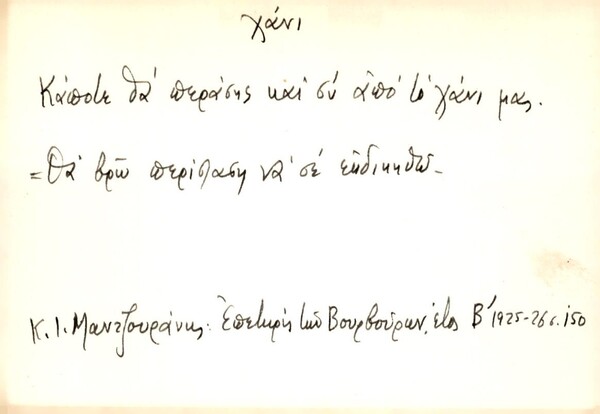 χάνι
Κάποτε θά περάσης καί σύ ἀπό τό χάνι μας.
= Θά βρῶ περίσταση νά σέ ἐκδικηθῶ -
Κ. Ι. Μαντζουράνης: Ἐπετηρίς τῶν Βουρβούρων, ἔτος Β΄ 1925-26 σ. 150